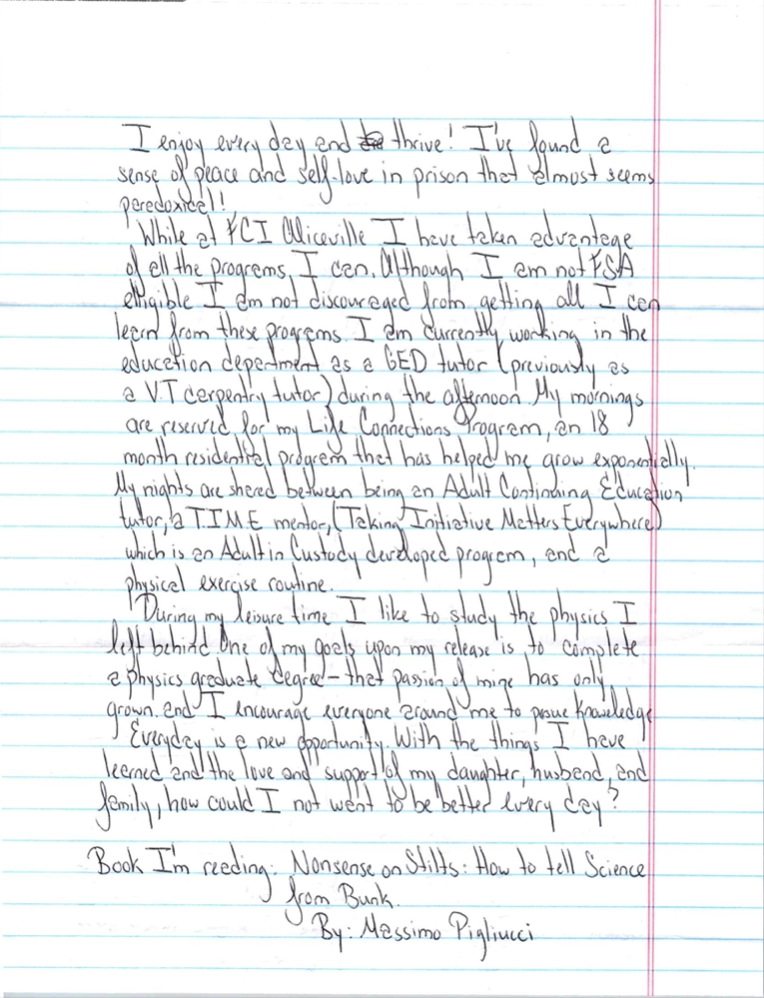 I enjoy every day and thrive! I've found a
sense of peace and self-love in prison that almost seems
paradoxical!
While at FCI Aliceville I have taken advantage
of all the programs I can. Although I am not FSA
eligible I am not discouraged from getting all I can
learn from these programs. I am currently working in the
education department as a GED tutor (previously as
a VT carpentry tutor) during the afternoon. My mornings
are reserved for my Life Connections Program, an 18
month residential program that has helped me grow exponentially.
My nights are shared between being an Adult Continuing Education
tutor, a T.I.M.E mentor, (Taking Initiative Matters Everywhere)
which is an Adult in Custody developed program, and a
physical exercise routine.
During my leisure time I like to study the physics I
left behind. One of my goals upon my release is to complete
a physics graduate degree - that passion of mine has only
grown. and I encourage everyone around me to pesue knowledge
Everyday is a new opportunity. With the things I have
learned and the love and support of my daughter, husband, and
family, how could I not want to be better every day?
Book I'm reading: Nonsense on Stilts: How to tell Science
from Bunk.
By: Massimo Pigliucci